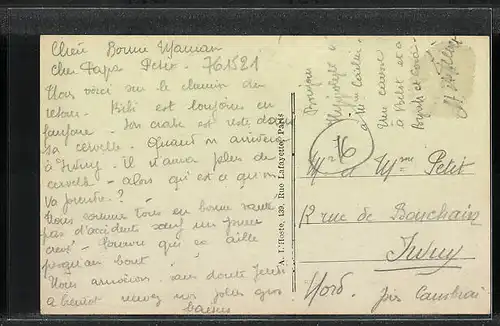 Chère Bonne Maman
cher Papa Petit - 761521
Nous voici sur le chemin du
retour. Bibi est toujours en
fanfare. Son crabe est resté dans
sa cervelle. Quand il arrivera
à Iwuy. il n'aura plus de
cervelle - alors qu'est ce qu'on
va prendre ?
Nous sommes tous en bonne santé
pas d'accident sauf un pneu
crevé - pourvu que ça aille
jusqu'au bout !
Nous arriverons sans doute Jeudi
à bientôt recevez nos plus gros
baisers
Bonjour
Hippolyte
à Mme
Une caresse
à et à
A. L'Hoste, 139, Rue Lafayette, Paris
16
Mr et Mme Petit
12 rue de Bouchain
Iwuy
Nord. près Cambrai